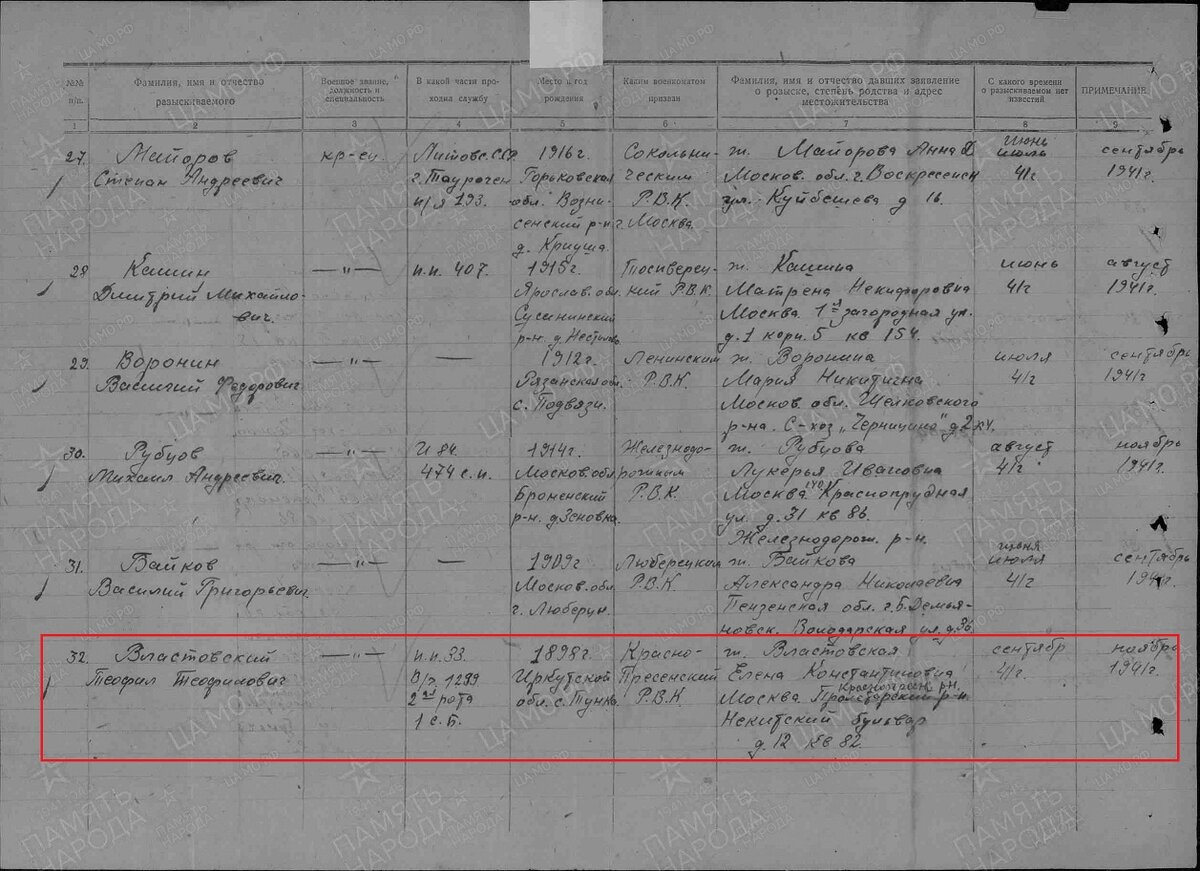 №№ п/п. Фамилия, имя и отчество разыскиваемого Военное звание, должность и специальность В какой части проходил службу Место и год рождения Каким военкоматом призван Фамилия, имя и отчество давших заявление о розыске, степень родства и адрес местожительства С какого времени о разыскиваемом нет известий ПРИМЕЧАНИЕ
1 2 3 4 5 6 7 8 9
27. Майоров кр-ец. Литовс. ССР 1916г. Сокольни- ж. Майорова Анна июнь сентябрь
Степан Андреевич г. Таурочен Горьковская ческим Москов. обл. г. Воскресенск 41г 1941г.
п/я 193. обл. Возне- Р.В.К. ул. Куйбешева д 16.
сенский р-н г. Москва.
д. Криуша.
28 Кашин —"— п.п. 407. 1915г. ж. Кашина июнь август
Дмитрий Михайло- Ярослав. обл. кий Р.В.К. Матрена Некифоровна 41г 1941г.
вич. Сусининский Москва 1ая загородная ул.
р-н. д. д. 1 корп. 5 кв 154.
29. Воронин —"— — 1912г. Ленинским ж. Воронина июля сентябрь
Василий Федорович Рязанская обл. Р.В.К. Мария Никитична 41г 1941г.
с. Подвязи. Москов. обл. Щелковского
р-на. С-хоз „Черницино" д 2 кч.
30. Рубцов —"— 1914г. Железнодо- ж. Рубцова август ноябрь
Михаил Андреевич. 474 с.п. Москов. обл рожным Лукерья Ивановна 41г 1941г.
Броненский Р.В.К. Москва 140 Краснопрудная
р-н. ул. д. 31 кв 86.
Железнодорож. р-н.
31. Вайков —"— — 1909г. Люберецким ж. Вайкова июля сентябрь
Василий Григорьевич Москов. обл. Р.В.К. Александра Николаевна 41г 1941г.
г. Люберцы. Пензенская обл. г. Б. Демья-
новск. Володарская ул. д. 36.
32. Властовский —"— п.п. 33. 1898г. Красно- ж. Властовская сентябр ноябрь
Теофил Теофилович В/г 1289 Иркутской Пресенский Елена Константиновна 41г 1941г.
2ая рота обл. с. Тунка Р.В.К. Москва р-н.
1 с.б. Некитский бульвар
д. 12 кв 82
ПАМЯТЬ НАРОДА
ЦАМО.РФ